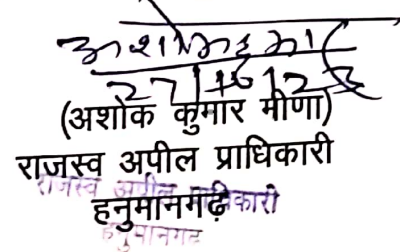 अशोक कुमार
27/10/23
(अशोक कुमार मीणा)
राजस्व अपील प्राधिकारी
हनुमानगढ़
राजस्व अपील प्राधिकारी
हनुमानगढ़